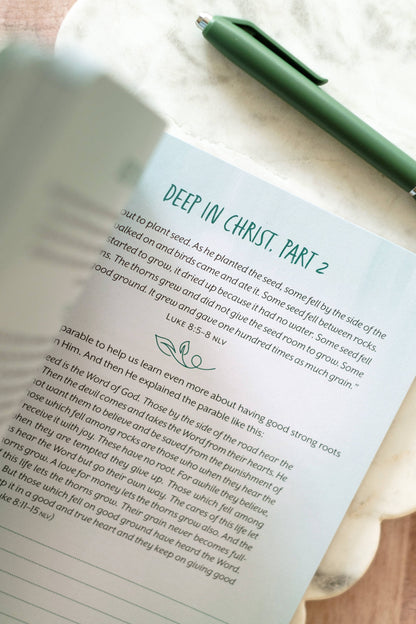 DEEP IN CHRIST, PART 2
out to plant seed. As he planted the seed, some fell by the side of the
walked on and birds came and ate it. Some seed fell between rocks.
started to grow, it dried up because it had no water. Some seed fell
ns. The thorns grew and did not give the seed room to grow. Some
good ground. It grew and gave one hundred times as much grain."
LUKE 8:5-8 NLV
parable to help us learn even more about having good strong roots
n Him. And then He explained the parable like this:
eed is the Word of God. Those by the side of the road hear the
Then the devil comes and takes the Word from their hearts. He
not want them to believe and be saved from the punishment of
hose which fell among rocks are those who when they hear the
receive it with joy. These have no root. For awhile they believe,
hen they are tempted they give up. Those which fell among
s hear the Word but go their own way. The cares of this life let
orns grow. A love for money lets the thorns grow also. And the
f this life lets the thorns grow. Their grain never becomes full-
But those which fell on good ground have heard the Word.
ep it in a good and true heart and they keep on giving good
uke 8:11-15 NLV)